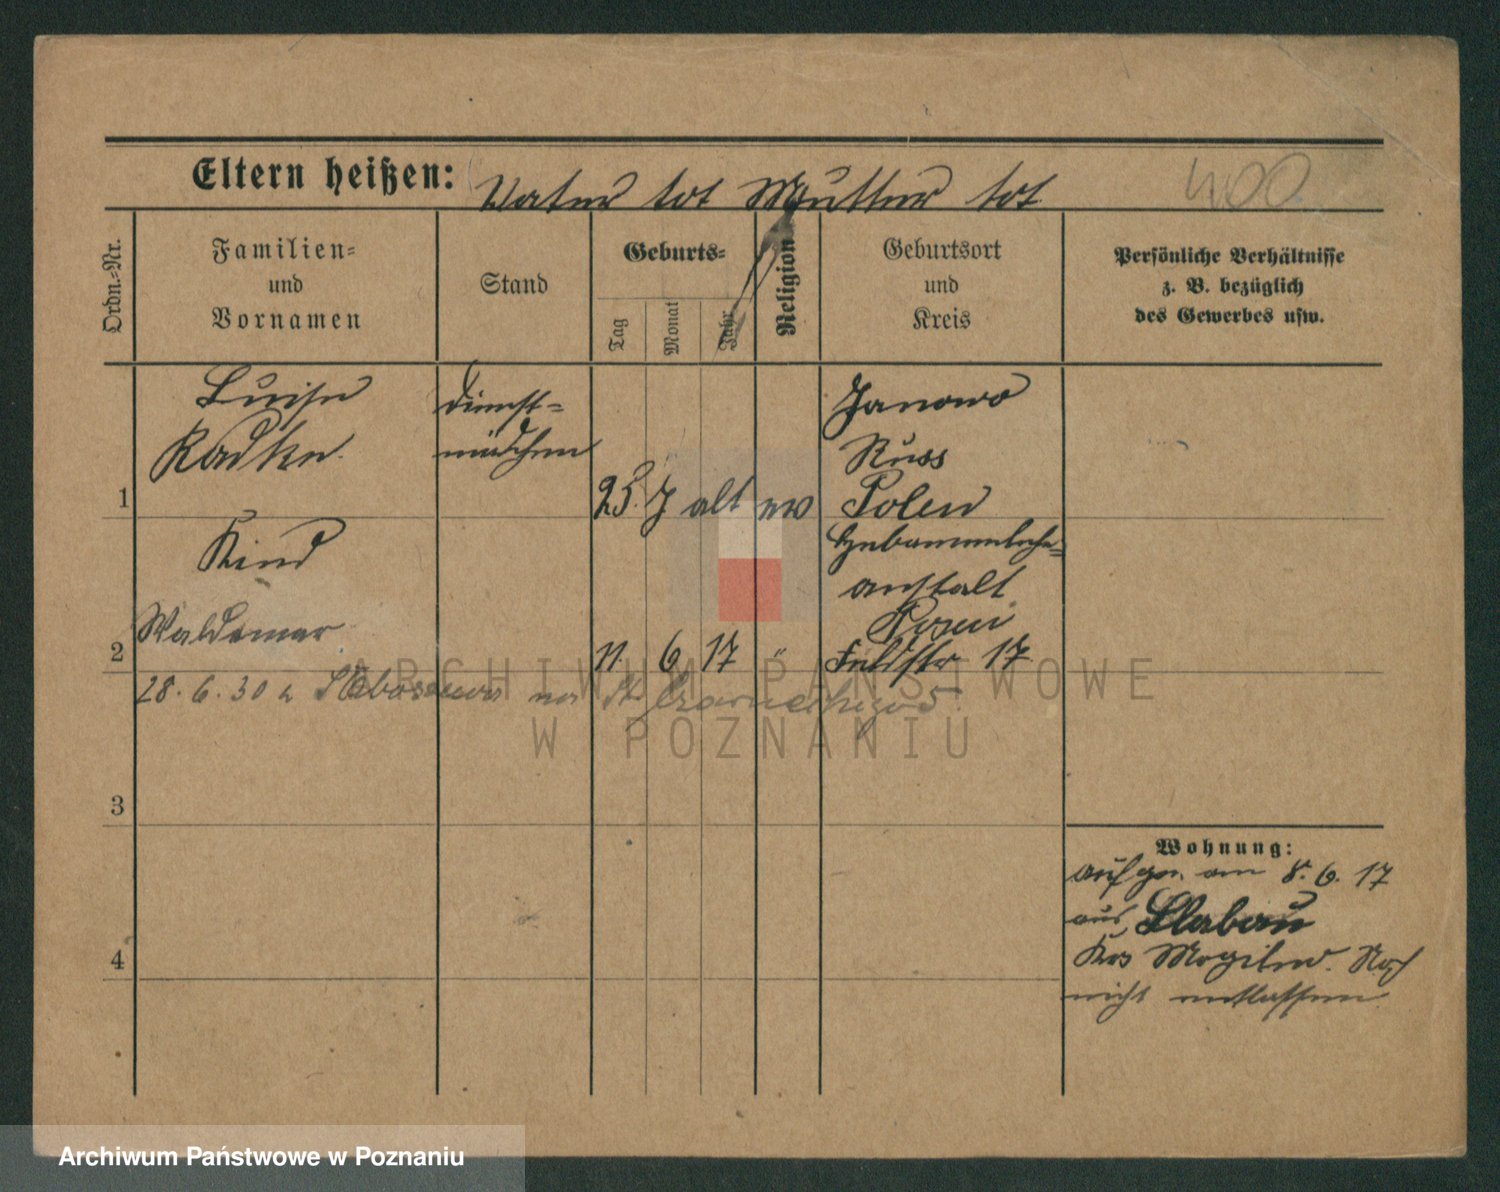 Eltern heißen: Vater tot Mutter tot
400
Ordn.-Nr.
Familien-
und
Vornamen
Stand
Geburts-
Tag
Monat
Jahr
Religion
Geburtsort
und
Kreis
Persönliche Verhältnisse
z. B. bezüglich
des Gewerbes usw.
1
Luise
Radke
Dienst-
mädchen
25 J alt
ev
Janowo
Russ
Polen
2
Kind
Waldemar
11 6 17
"
Hebammenlehr-
anstalt
Posen
Feldstr 17
28. 6. 30 z na Czarneckiego 5
3
4
Wohnung:
aufgen. am 8. 6. 17
aus Slabau
Krs Mogilno. Noch
nicht entlassen
ARCHIWUM PAŃSTWOWE
W POZNANIU
Archiwum Państwowe w Poznaniu